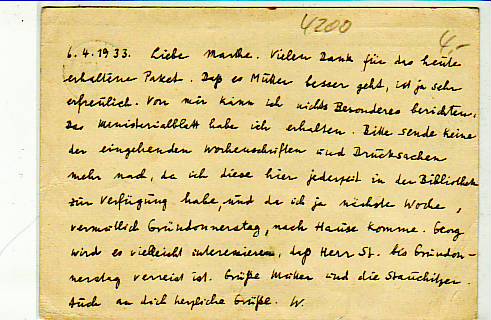 4200
4,-
6.4.1933. Liebe Marthe. Vielen Dank für das heute
erhaltene Paket. Daß es Mutter besser geht, ist ja sehr
erfreulich. Von mir kann ich nichts Besonderes berichten.
Das Ministerialblatt habe ich erhalten. Bitte sende keine
der eingehenden Wochenschriften und Drucksachen
mehr nach, da ich diese hier jederzeit in der Bibliothek
zur Verfügung habe, und da ich ja nächste Woche,
vermutlich Gründonnerstag, nach Hause komme. Georg
wird es vielleicht interessieren, daß Herr St. bis Gründon-
nerstag verreist ist. Grüße Mutter und die Stauchitzer.
Auch an dich herzliche Grüße. W.